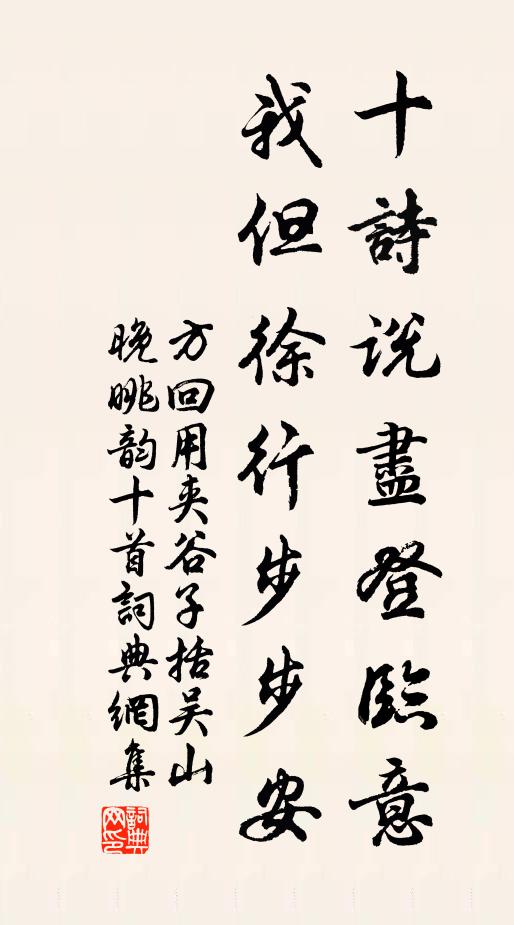 十詩説盡登臨意
我但徐行步步安
方回用夾谷子括吴山
晚眺韵十首詞典網集
詞典网印